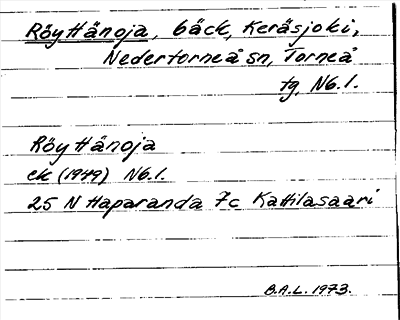 Röyttänoja, bäck, Keräsjoki,
Nedertorneå sn, Torneå
tg, N6.1.
Röyttänoja
ek (1949) N6.1.
25 N Haparanda 7c Kattilasaari
B.A.L. 1973.